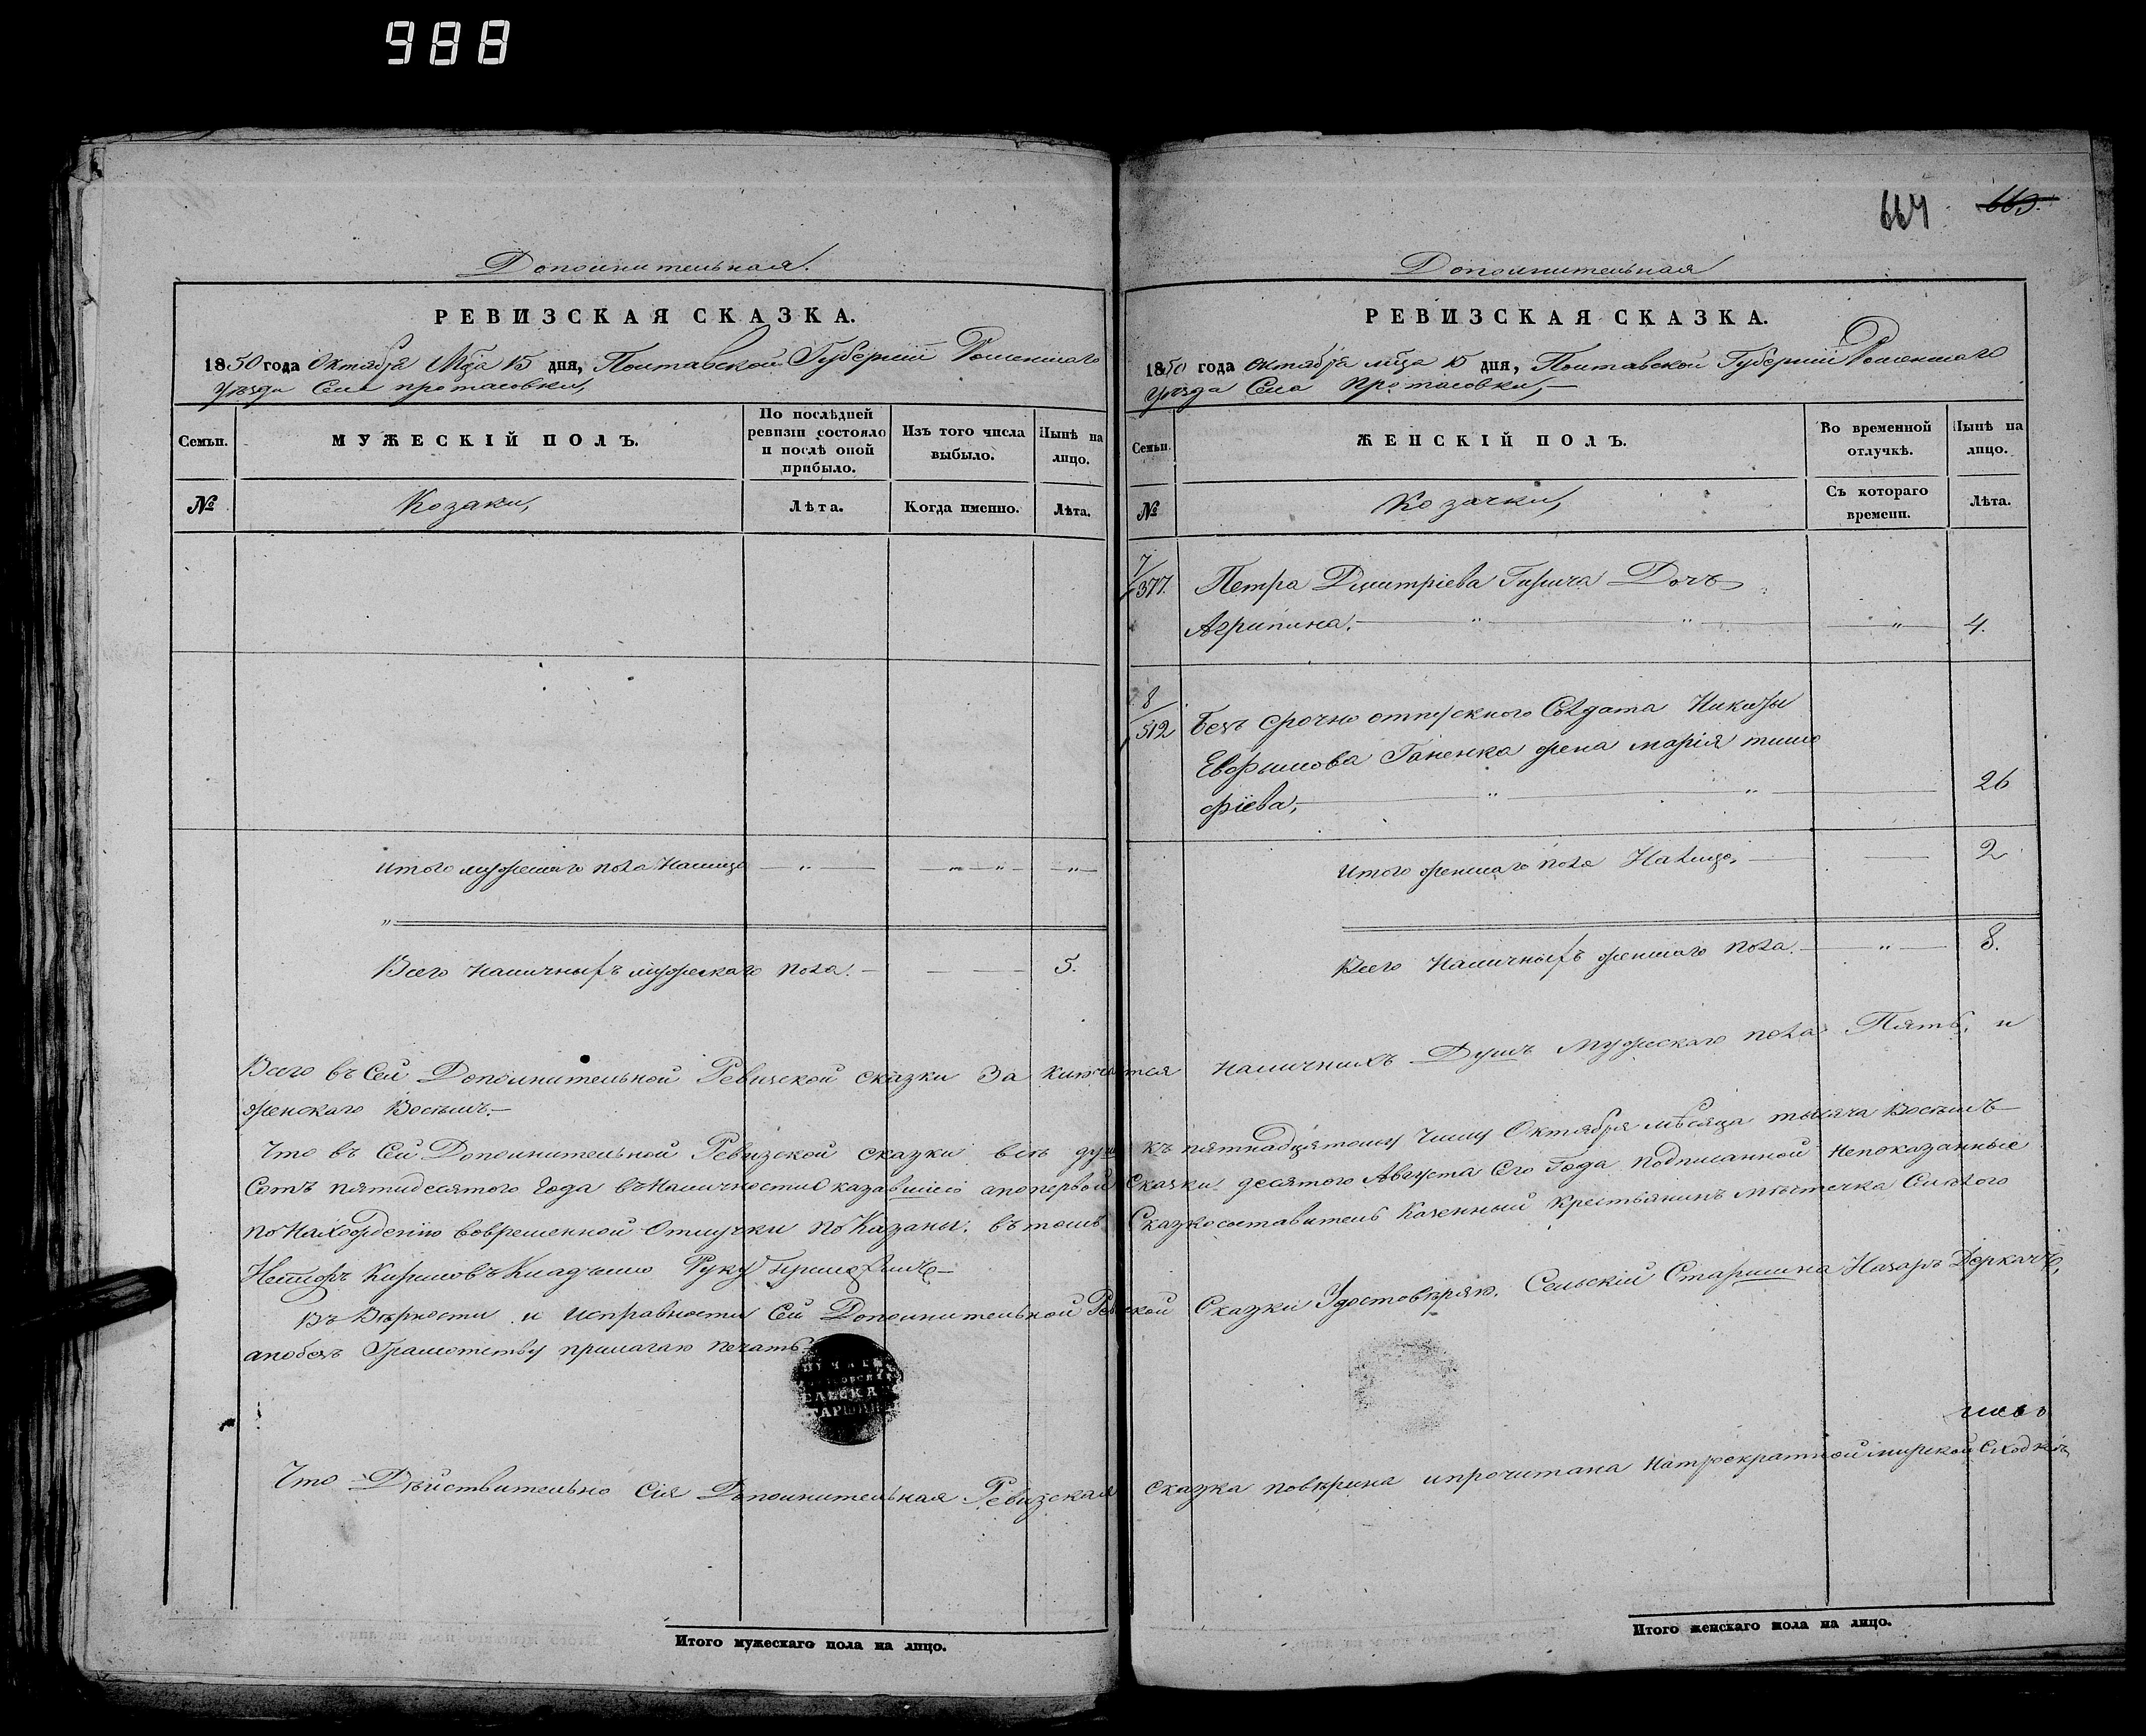 988
664 663.
Дополнительная.
РЕВИЗСКАЯ СКАЗКА.
1850 года Октября Мца 15 дня, Полтавской Губерніи Роменскаго
уезда Села протасовки,
Семьи.
МУЖЕСКІЙ ПОЛЪ.
По послѣдней
ревизіи состояло
и послѣ оной
прибыло.
Изъ того числа
выбыло.
Нынѣ на
лицо.
№
Козаки,
Лѣта.
Когда именно.
Лѣта.
итого мужескаго пола Налицо — „ — — „ — „ — — „ —
„
Всего наличныхъ мужескаго пола. — — 5.
Дополнительная
РЕВИЗСКАЯ СКАЗКА.
1850 года Октября мца 15 дня, Полтавской Губерніи Роменскаго
уезда Села Протасовки, —
Семьи.
ЖЕНСКІЙ ПОЛЪ.
Во временной
отлучкѣ.
Нынѣ на
лицо.
№
Козачки,
Съ котораго
времени.
Лѣта.
7/377. Петра Дмитріева Дочь
Агрипина. — „ — „ — „ — 4.
8/512 Безъ срочно отпускного Солдата
Ганенка жена марія тимо
фіева, — „ — „ — 26
итого женскаго пола Налицо, — — 2
Всего Наличныхъ женскаго пола. — „ — 8.
Всего въ Сей Дополнительной Ревизской сказки Заключается Наличныхъ Душъ Мужескаго пола Пять, и
женскаго Восемь. —
Что въ Сей Дополнительной Ревизской сказки всѣ души къ пятнадцятому числу Октября мѣсяца тысяча Восемь
Сотъ пятидесятого Года въ Наличности Оказавшіеся а по первой Сказки десятого Августа Сего Года подписанной непоказанные
по Нахожденію вовременной Отлучки показаны. въ томъ Сказкосоставитель Казенный Крестьянинъ мѣстечка Смелого
Кириловъ Руку
Въ Вѣрности и исправности Сей Дополнительной Ревизской Сказки Удостовѣряю. Сельскій Старшина Назаръ Деркачъ,
а побезъ Грамотству прилагаю печать
Что Дѣйствительно Сія Дополнительная Ревизская сказка повѣрина и прочитана натроекратной мирской Сходкѣ,
Итого мужескаго пола на лицо.
Итого женскаго пола на лицо.